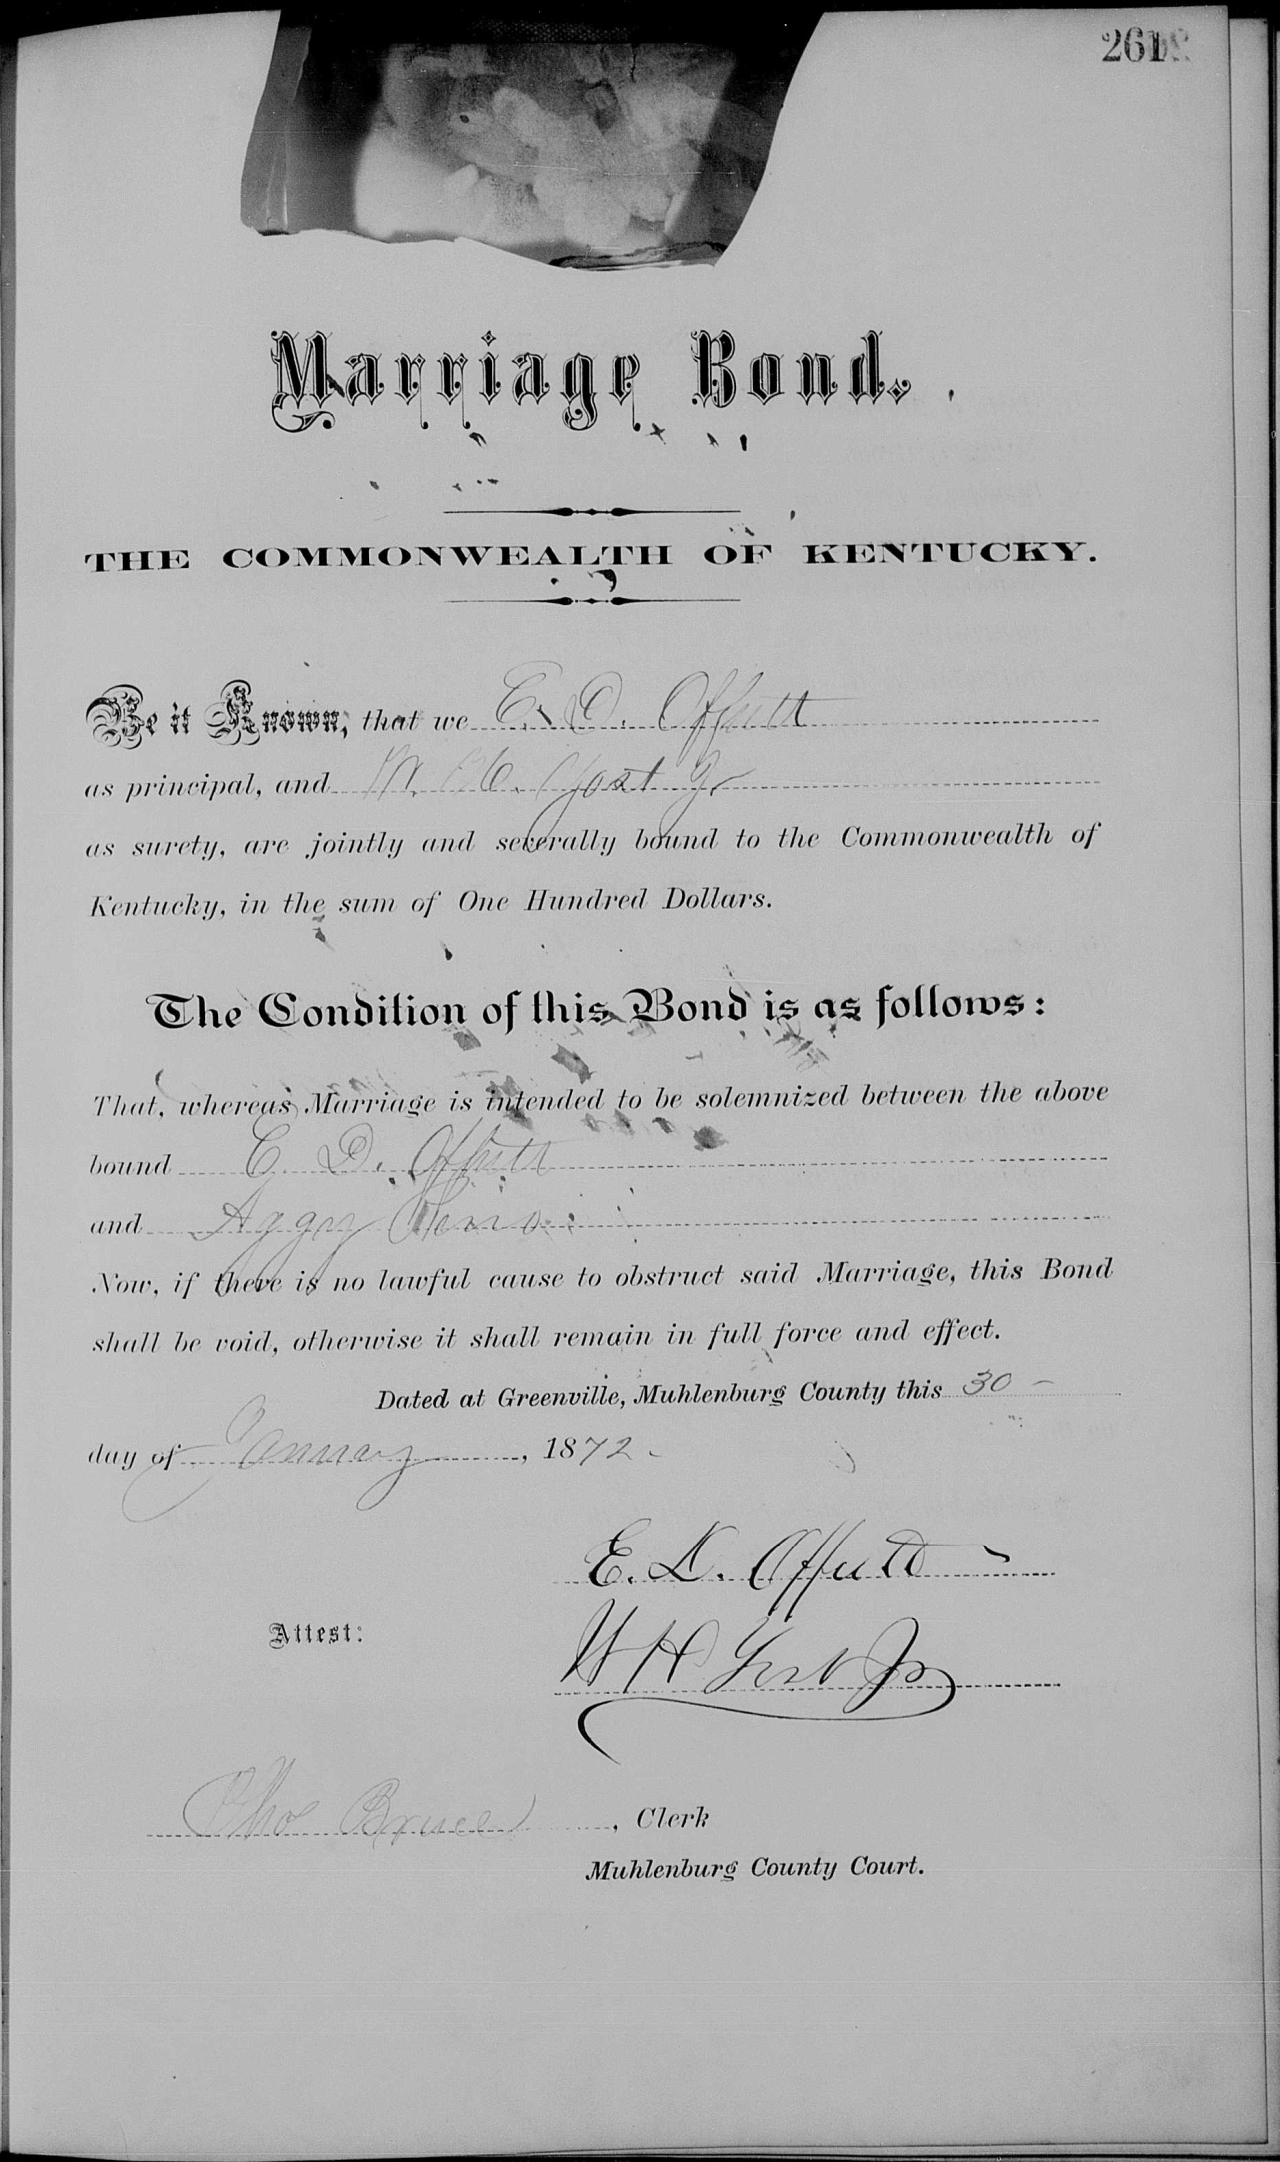 261
Marriage Bond.
THE COMMONWEALTH OF KENTUCKY.
Be it Known, that we E. D. Offutt
as principal, and W. H. Yost Jr
as surety, are jointly and severally bound to the Commonwealth of
Kentucky, in the sum of One Hundred Dollars.
The Condition of this Bond is as follows:
That, whereas Marriage is intended to be solemnized between the above
bound E. D. Offutt
and Aggy
Now, if there is no lawful cause to obstruct said Marriage, this Bond
shall be void, otherwise it shall remain in full force and effect.
Dated at Greenville, Muhlenburg County this 30 -
day of January, 1872 -
E. D. Offutt
Attest:
W H Yost Jr
Bruce, Clerk
Muhlenburg County Court.